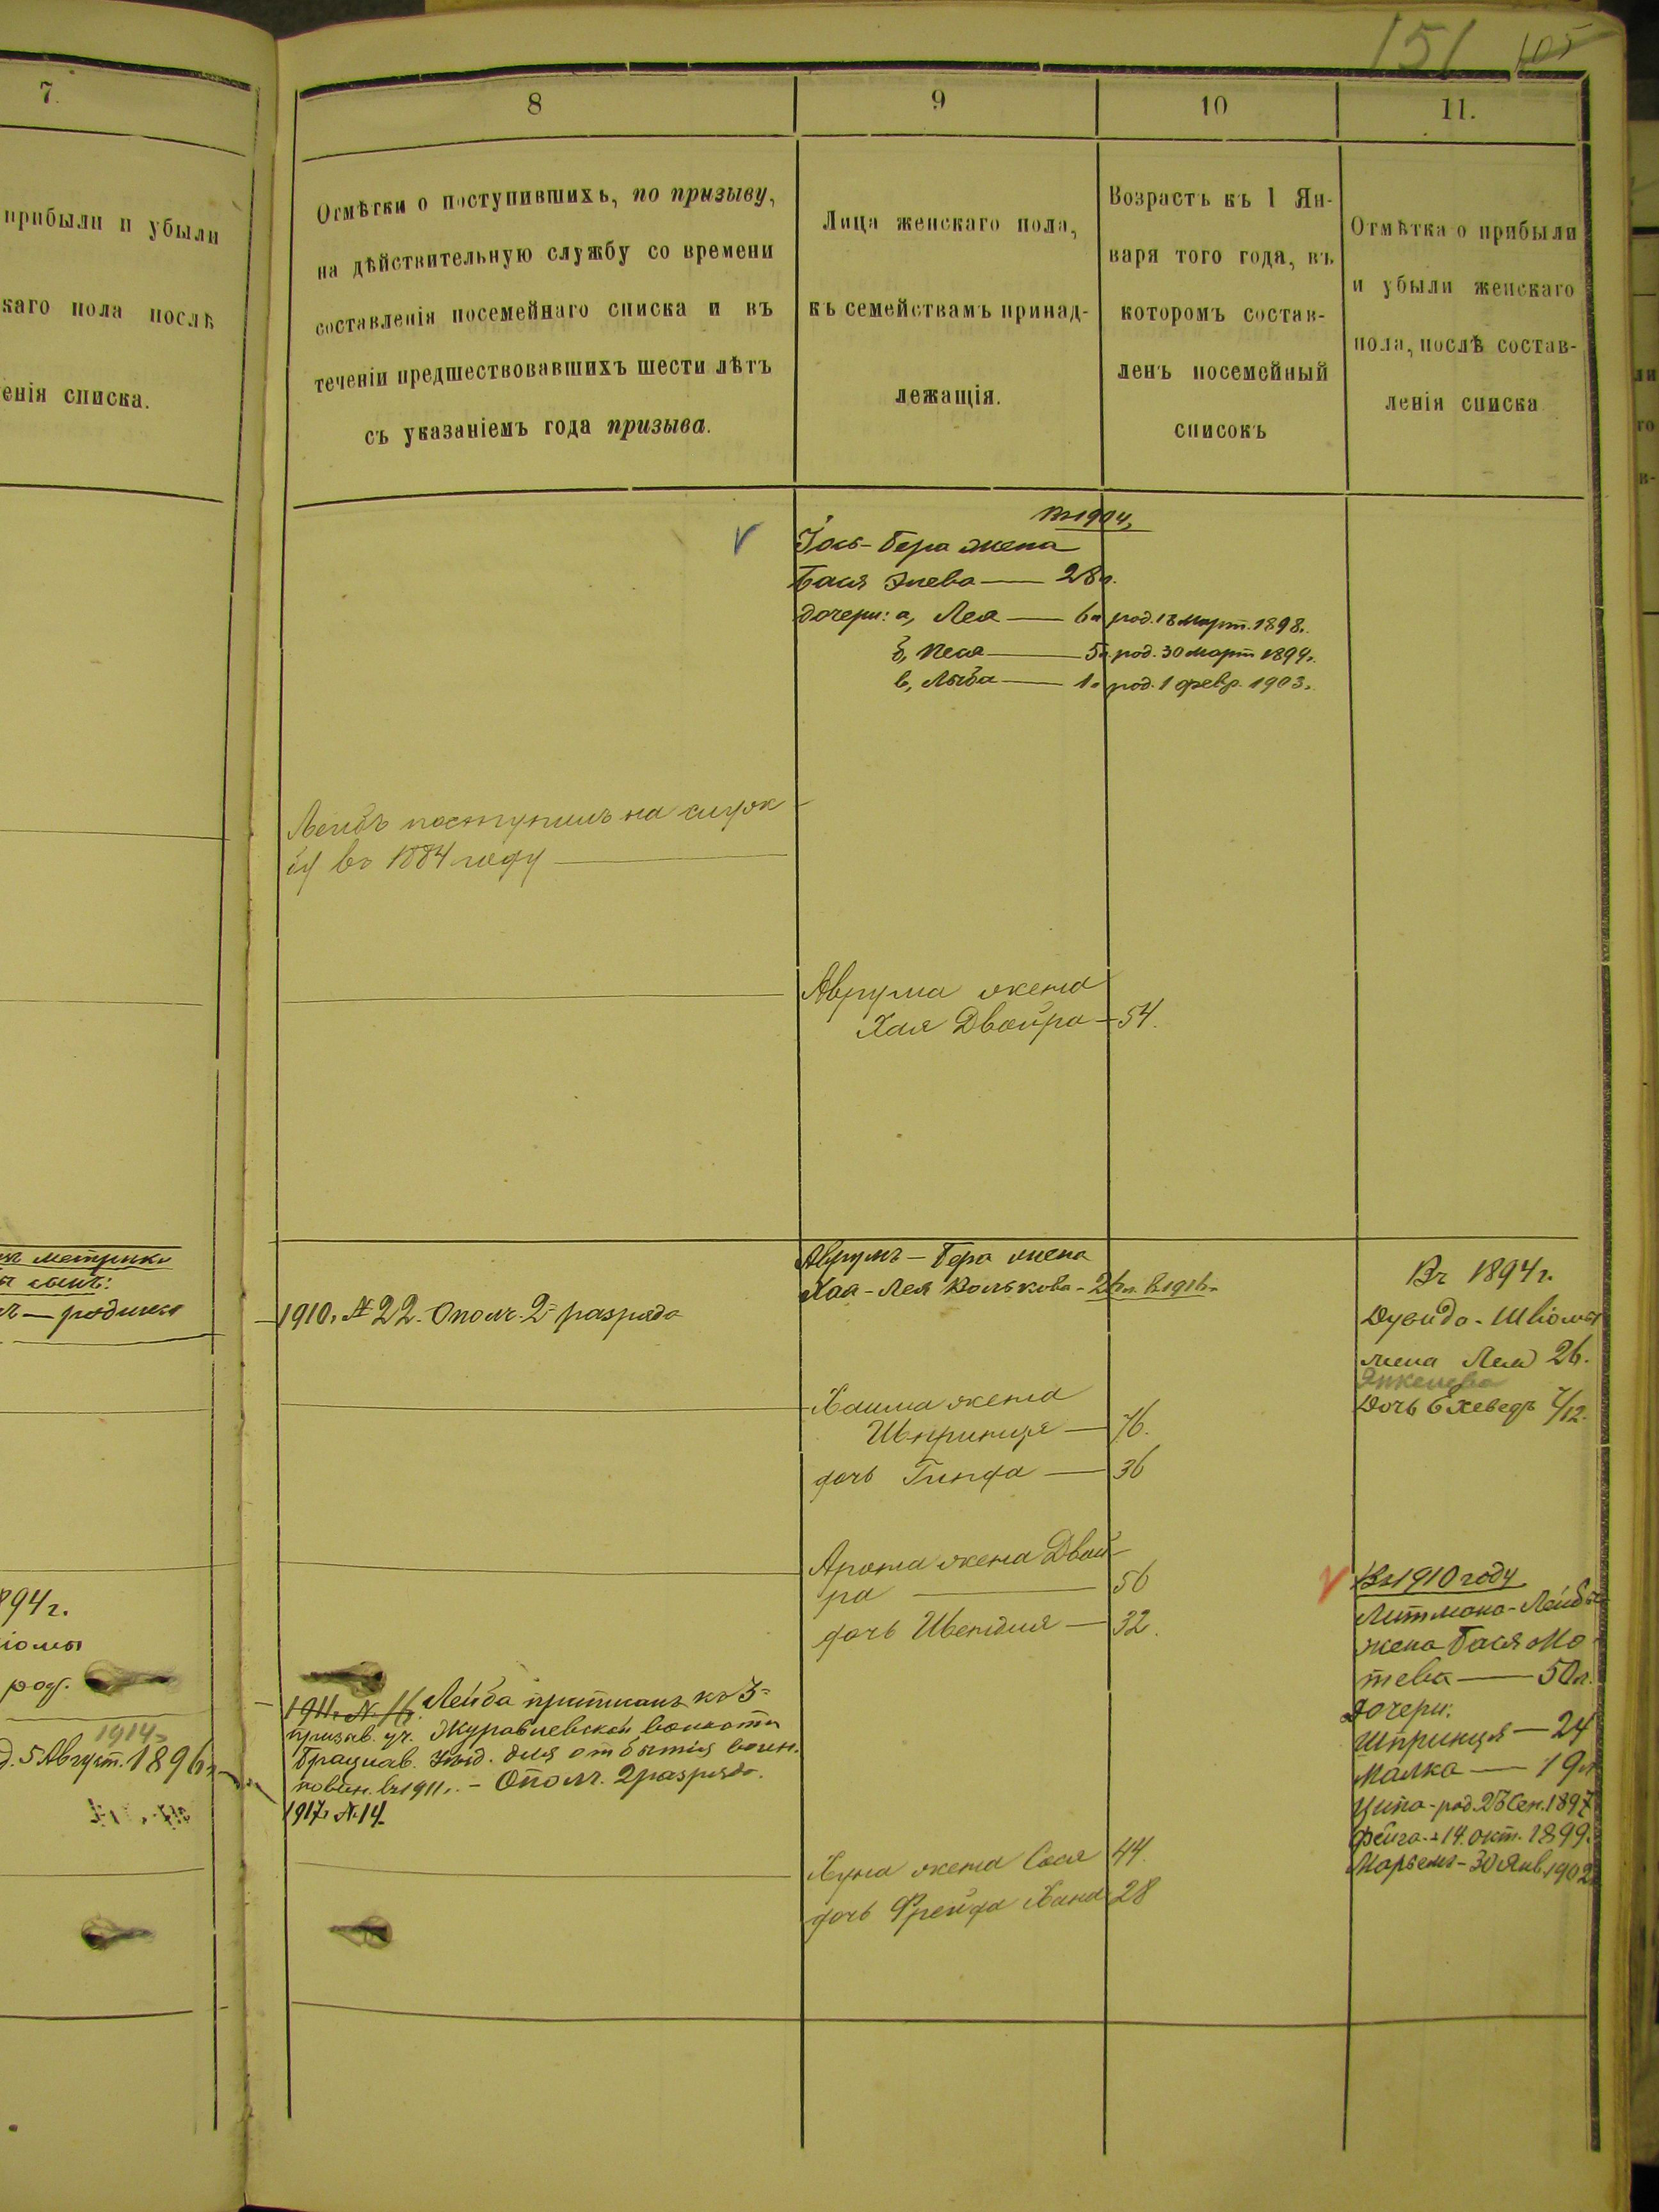 151 105
7.
прибыли и убыли
скаго пола послѣ
енія списка.
метрики
сынъ:
— родился
894 г.
род.
1914
5 Август. 1896 г.
8
Отмѣтки о поступившихъ, по призыву,
на дѣйствительную службу со времени
составленія посемейнаго списка и въ
теченіи предшествовавшихъ шести лѣтъ
съ указаніемъ года призыва.
Лейбъ поступилъ на служ-
бу въ 1884 году
1910 г. № 22. Ополч. 2 разряда
1911 г. № 16. Лейба приписанъ къ 3
призыв. уч. Журавлевской волости
Брацлав. уѣзд. для отбытія воин.
повин. въ 1911 г. – Ополч. 2 разряда.
1917 г. № 14.
9
Лица женскаго пола,
къ семействамъ принад-
лежащія.
10
Возрастъ къ 1 Ян-
варя того года, въ
которомъ состав-
ленъ посемейный
списокъ
Въ 1904 г.
Іось-Бера жена
Бася Элева — 28 л.
дочери: а, Лея — 6 л. род. 18 март. 1898 г.
б, Песя — 5 л. род. 30 март 1899 г.
в, Лыба — 1 г. род. 1 февр. 1903 г.
Аврума жена
Хая Двойра — 54.
Аврумъ-Бера жена
Хая-Лея Волькова - 26 л. въ 1916 г.
Хаима жена
Шпринця — 76.
дочь Гинда — 36
Арона жена Двой-
ра — 56
дочь Шейндля — 32.
Хуна жена Сося 44.
дочь Фрейда Хана 28
11.
Отмѣтка о прибыли
и убыли женскаго
пола, послѣ состав-
ленія списка
Въ 1894 г.
Дувида-Шліомы
жена Лея 26.
Янкелева
Дочь Єхеведъ 7/12.
Въ 1910 году
Литмана-Лейбы
жена Бася Мо-
тева — 50 л.
дочери:
Шпринця — 24
Малка — 19 л.
Ципа - род. 23 Сен. 1897
Фейга - 14 окт. 1899.
Марьемъ - 30 Янв. 1902